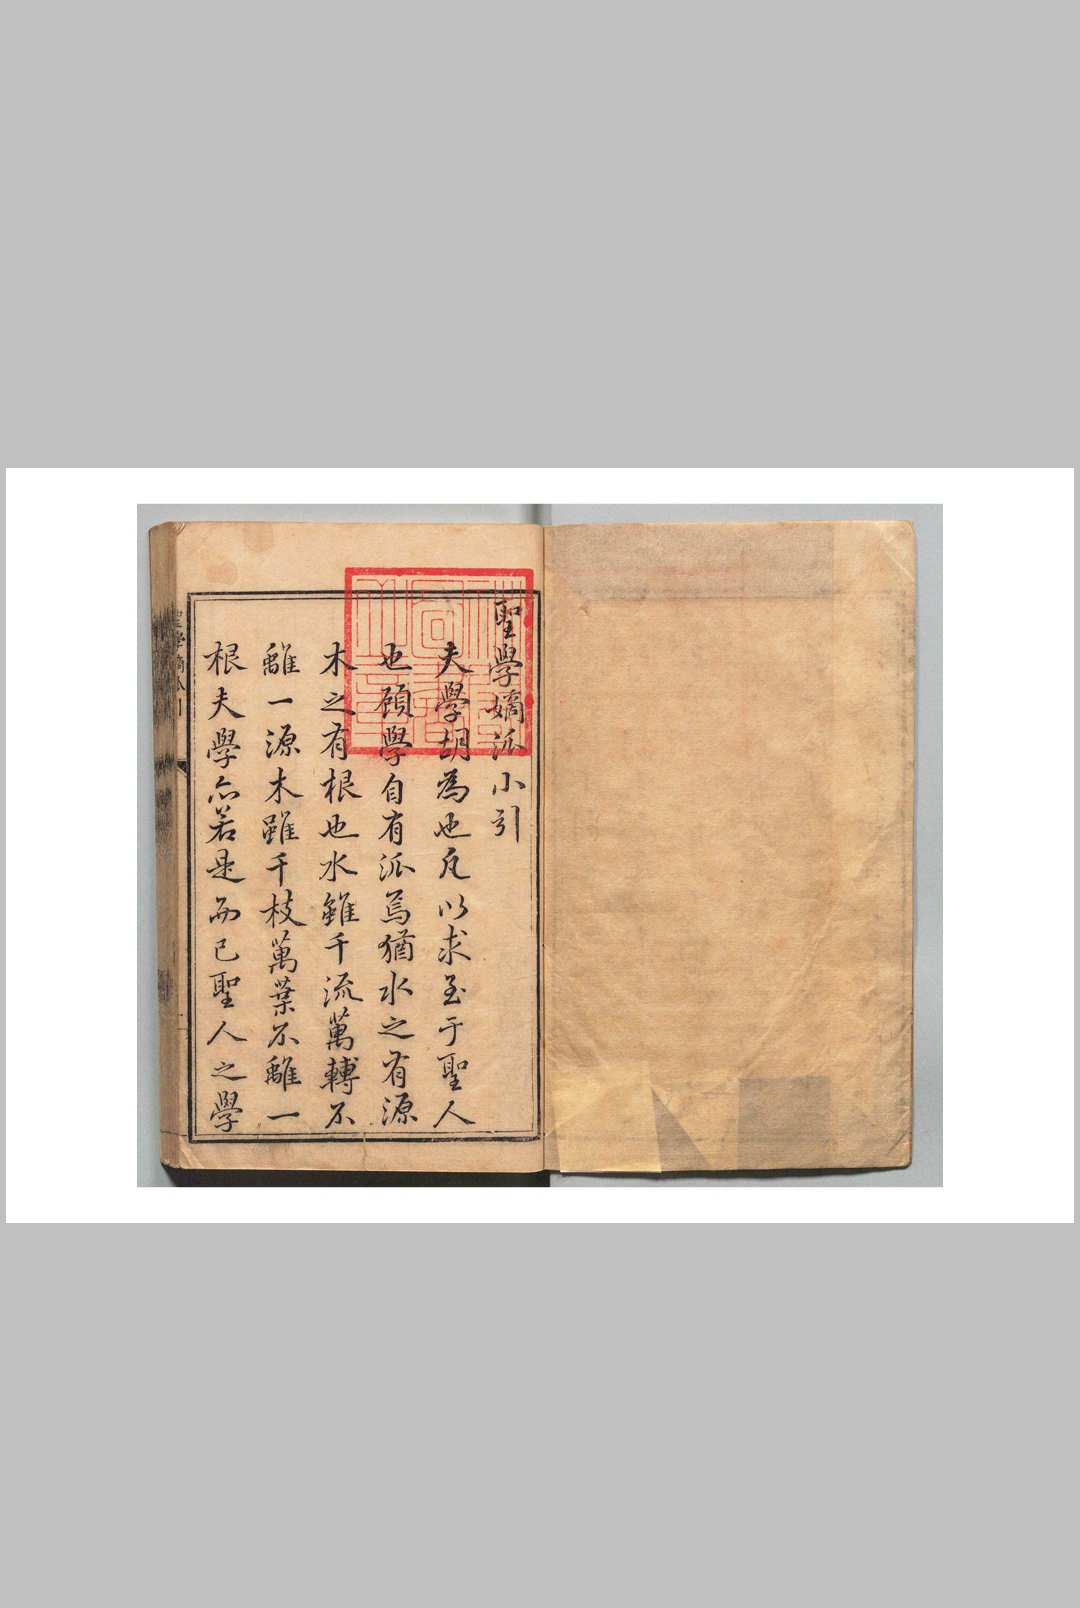 聖學嫡派小引
夫學胡為也凡以求至于聖人
也顧學自有派焉猶水之有源
木之有根也水雖千流萬轉不
離一源木雖千枝萬葉不離一
根夫學亦若是而已聖人之學